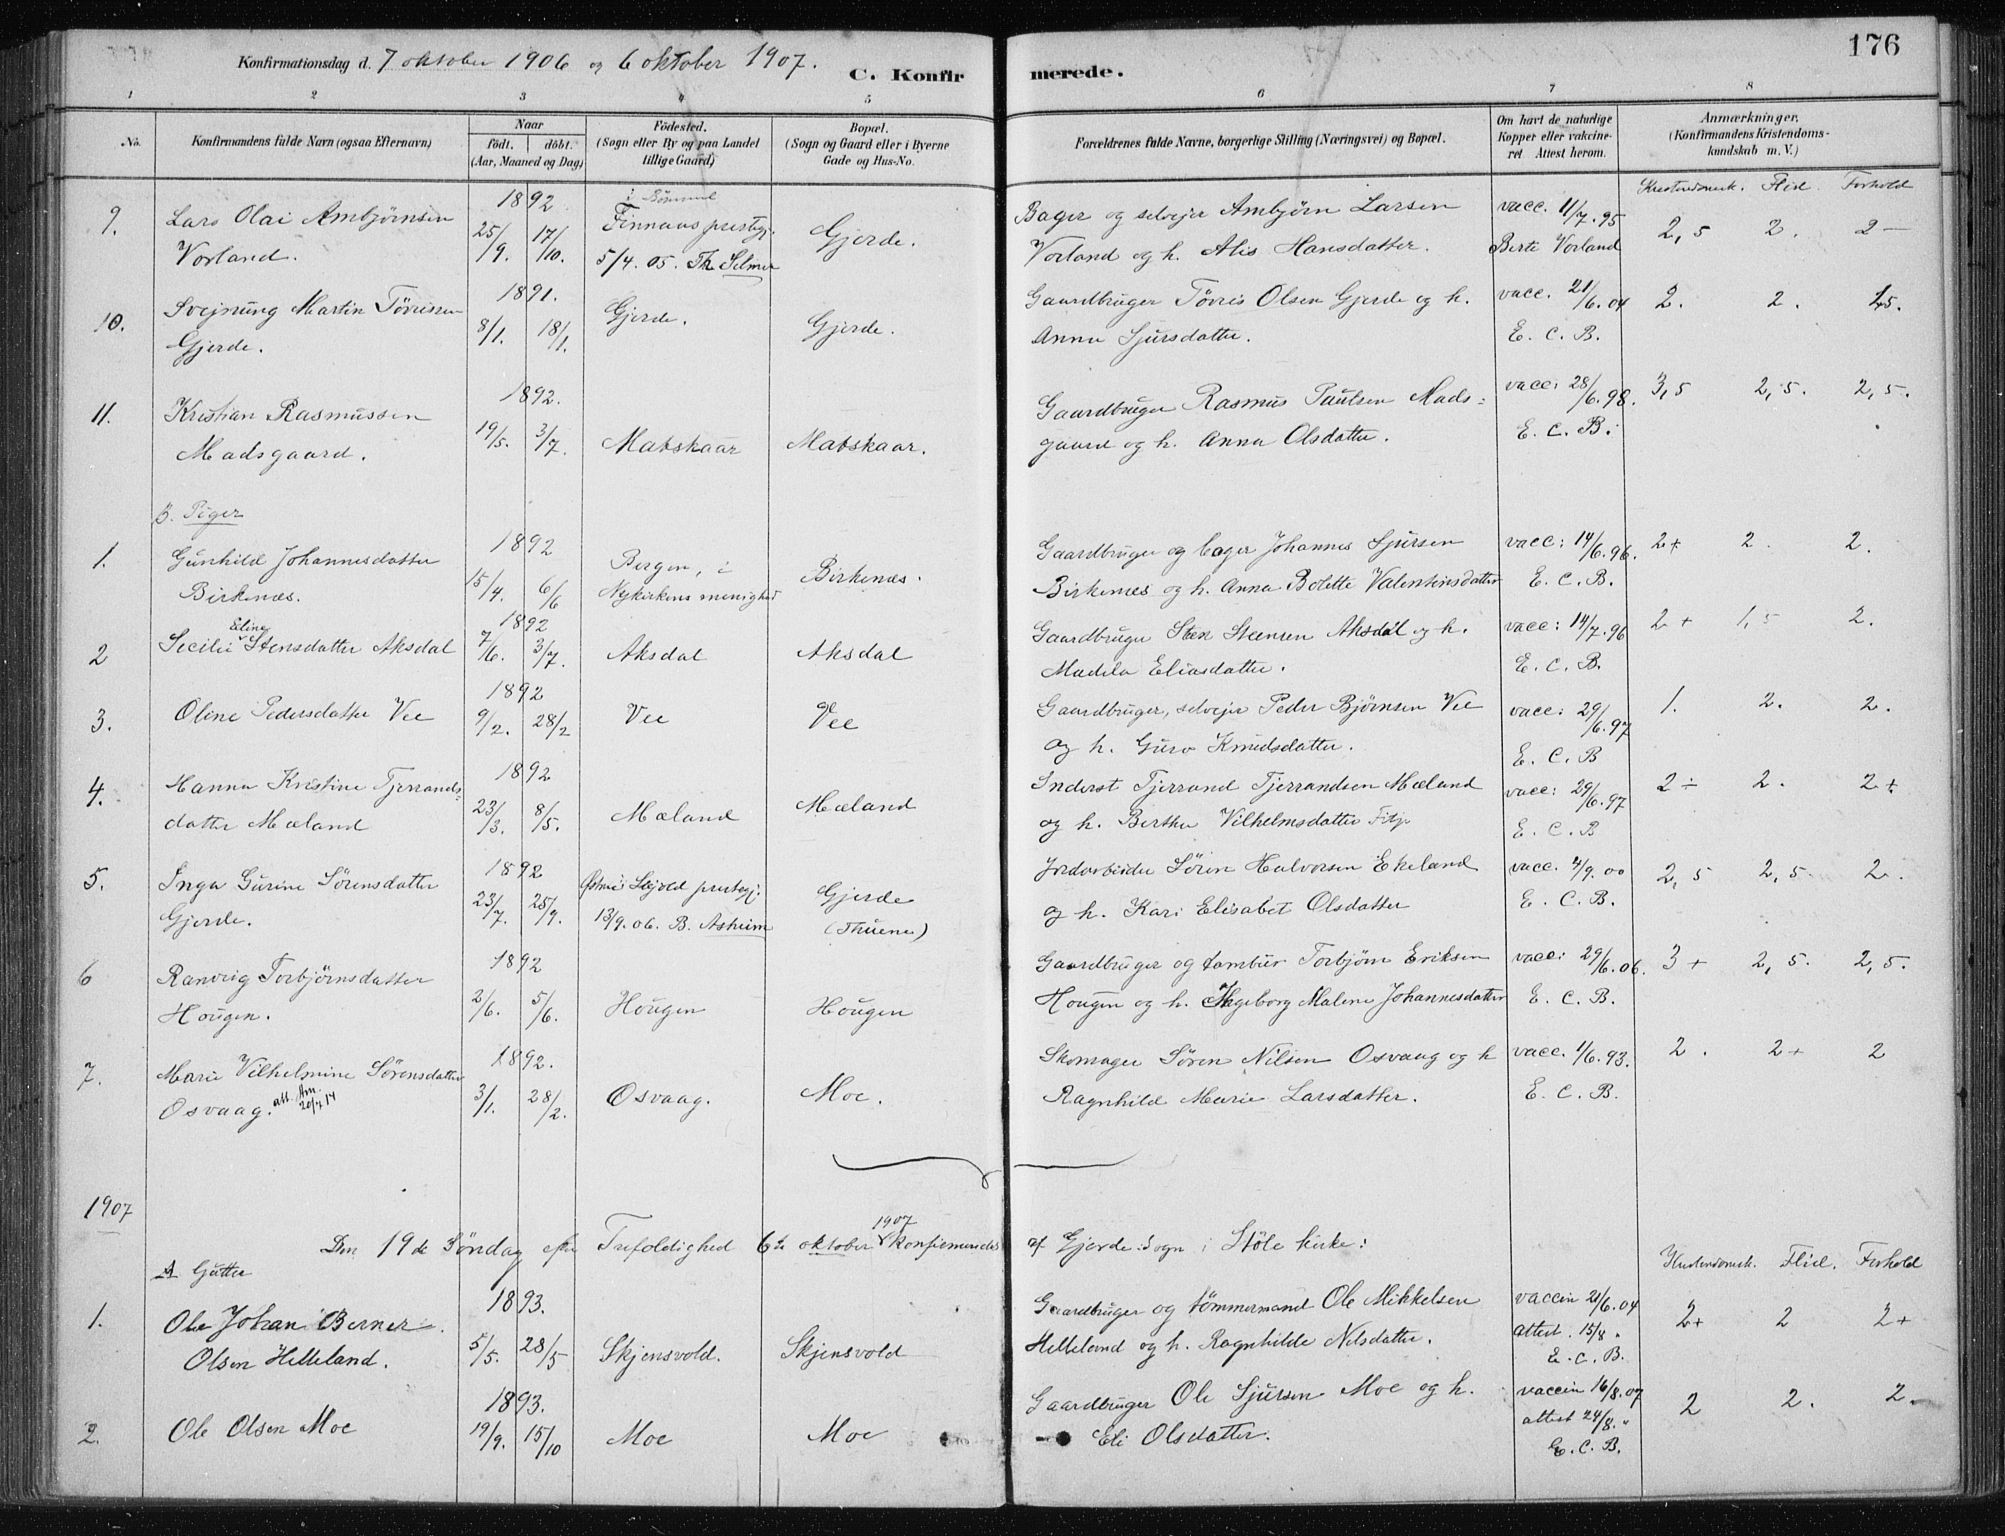 176
Konfirmationsdag d. 7 oktober 1906 og 6 oktober 1907.
C. Konfir merede.
1 2 3 4 5 6 7 8
No.
Konfirmandens fulde Navn (ogsaa Efternavn)
Naar
födt. döbt.
(Aar, Maaned og Dag)
Födested.
(Sogn eller By og paa Landet
tillige Gaard)
Bopæl.
(Sogn og Gaard eller i Byerne
Gade og Hus-No.
Forældrenes fulde Navne, borgerlige Stilling (Næringsvei) og Bopæl.
Om havt de naturlige
Kopper eller vakcine-
ret Attest herom.
Anmærkninger.
(Konfirmandens Kristendoms-
kundskab m. V.)
Kristendomsk. Flid. Forhold
9. Lars Olai Ambjørnsen
Vorland.
1892
25/9. 17/10.
i Bømmel
Finnaas prestegj.
5/4. 05. Th. Selmer
Gjerde.
Bager og selvejer Ambjørn Larsen
Vorland og h. Alis Hansdatter.
vacc. 11/7. 95
Berte Vorland
2,5 2. 2 -
10. Svejnung Martin Tørrissen
Gjerde.
1891.
8/1. 18/1.
Gjerde.
Gjerde.
Gaardbruger Tørris Olsen Gjerde og h.
Anna Sjursdatter.
vacc. 21/6. 04
E. C. B.
2. 2. 1,5.
11. Kristian Rasmussen
Madsgaard.
1892.
19/5. 3/7.
Matskaar
Matskaar.
Gaardbruger Rasmus Paulsen Mads-
gaard og h. Anna Olsdatter.
vacc: 28/6. 98.
E. C. B.
3,5 2,5. 2,5.
B. Piger
1. Gunhild Johannesdatter
Birkenæs.
1892
15/4. 6/6
Bergen, i
Nykirkens menighed
Birkenæs.
Gaardbruger og bager Johannes Sjursen
Birkenæs og h. Anna Bolette Valentinsdatter
vacc: 14/6. 96.
E. C. B.
2+ 2. 2.
Eline
2 Secilie Stensdatter Aksdal
1892
7/6. 3/7.
Aksdal
Aksdal
Gaardbruger Sten Steensen Aksdal og h.
Madela Eliasdatter.
vacc: 14/7. 96
E. C. B.
2 + 1,5 2.
3. Oline Pedersdatter Vee
1892
9/2. 28/2
Vee
Vee
Gaardbruger, selvejer Peder Bjørnsen Vee
og h. Guro Knudsdatter.
vacc: 29/6. 97
E. C. B
1. 2. 2.
4. Hanna Kristine Tjerrands-
datter Mæland
1892
23/3. 8/5.
Mæland
Mæland
Inderst Tjerrand Tjerrandsen Mæland
og h. Bertha Vilhelmsdatter Fitje
vacc: 29/6. 97
E. C. B
2 ÷ 2. 2+
5. Inga Gurine Sørensdatter
Gjerde.
1892
23/7. 25/9.
Østre i Skjold prestegj.
13/9. 06. B. Asheim
Gjerde
(Thuene)
Jordarbeider Søren Halvorsen Ekeland
og h. Kari Elisabet Olsdatter
vacc. 4/9. 00
E. C. B.
2,5 2,5 2.
6 Ranvig Torbjørnsdatter
Hougen.
1892
2/6. 5/6.
Hougen
Hougen
Gaardbruger og tambur Torbjørn Eriksen
Hougen og h. Ingeborg Malene Johannesdatter
vacc: 29/6. 06.
E. C. B.
3 + 2,5. 2,5.
7. Marie Vilhelmine Sørensdatter
Osvaag. att. Am. 20/4 14
1892.
3/1. 28/2.
Osvaag.
Moe.
Skomager Søren Nilsen Osvaag og h
Ragnhild Marie Larsdatter.
vacc. 1/6. 93.
E. C. B.
2. 2+ 2
1907
Den 19de Søndag efter Trefoldighed 6te oktober 1907 konfirmeredes af Gjerde Sogn i Støle kirke:
Kristendomsk. Flid. Forhold
A Gutter
1. Ole Johan Berner
Olsen Helleland.
1893.
5/5. 28/5
Skjensvold.
Skjensvold
Gaardbruger og tømmermand Ole Mikkelsen
Helleland og h. Ragnhilde Nilsdatter.
vaccin 21/6. 04
attest. 15/8 "
E. C. B.
2+ 2 2+
2. Ole Olsen Moe
1893.
19/9. 15/10
Moe
Moe
Gaardbruger Ole Sjursen Moe og h.
Eli Olsdatter.
vaccin 16/8. 07
attest 24/8. "
E. C. B.
2 2. 2.